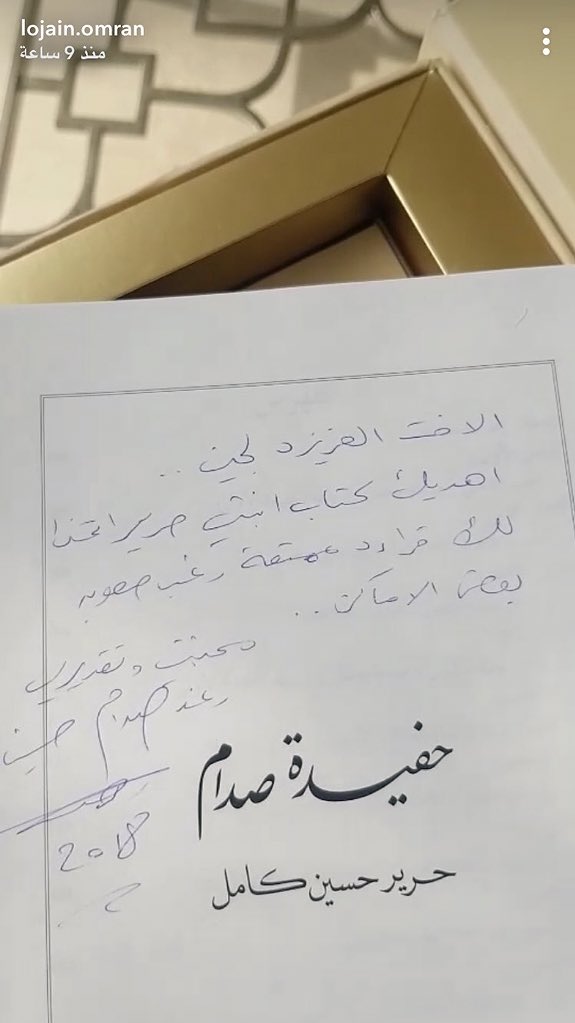 lojain.omran
منذ 9 ساعة
الاخت العزيزه لجين ..
اهديك كتاب ابنتي حرير اتمنا
لك قراءه ممتعة رغم صعوبه
بعض الاماكن ..
محبتي وتقديري
رغد صدام حسين
2018
حفيدة صدام
حرير حسين كامل